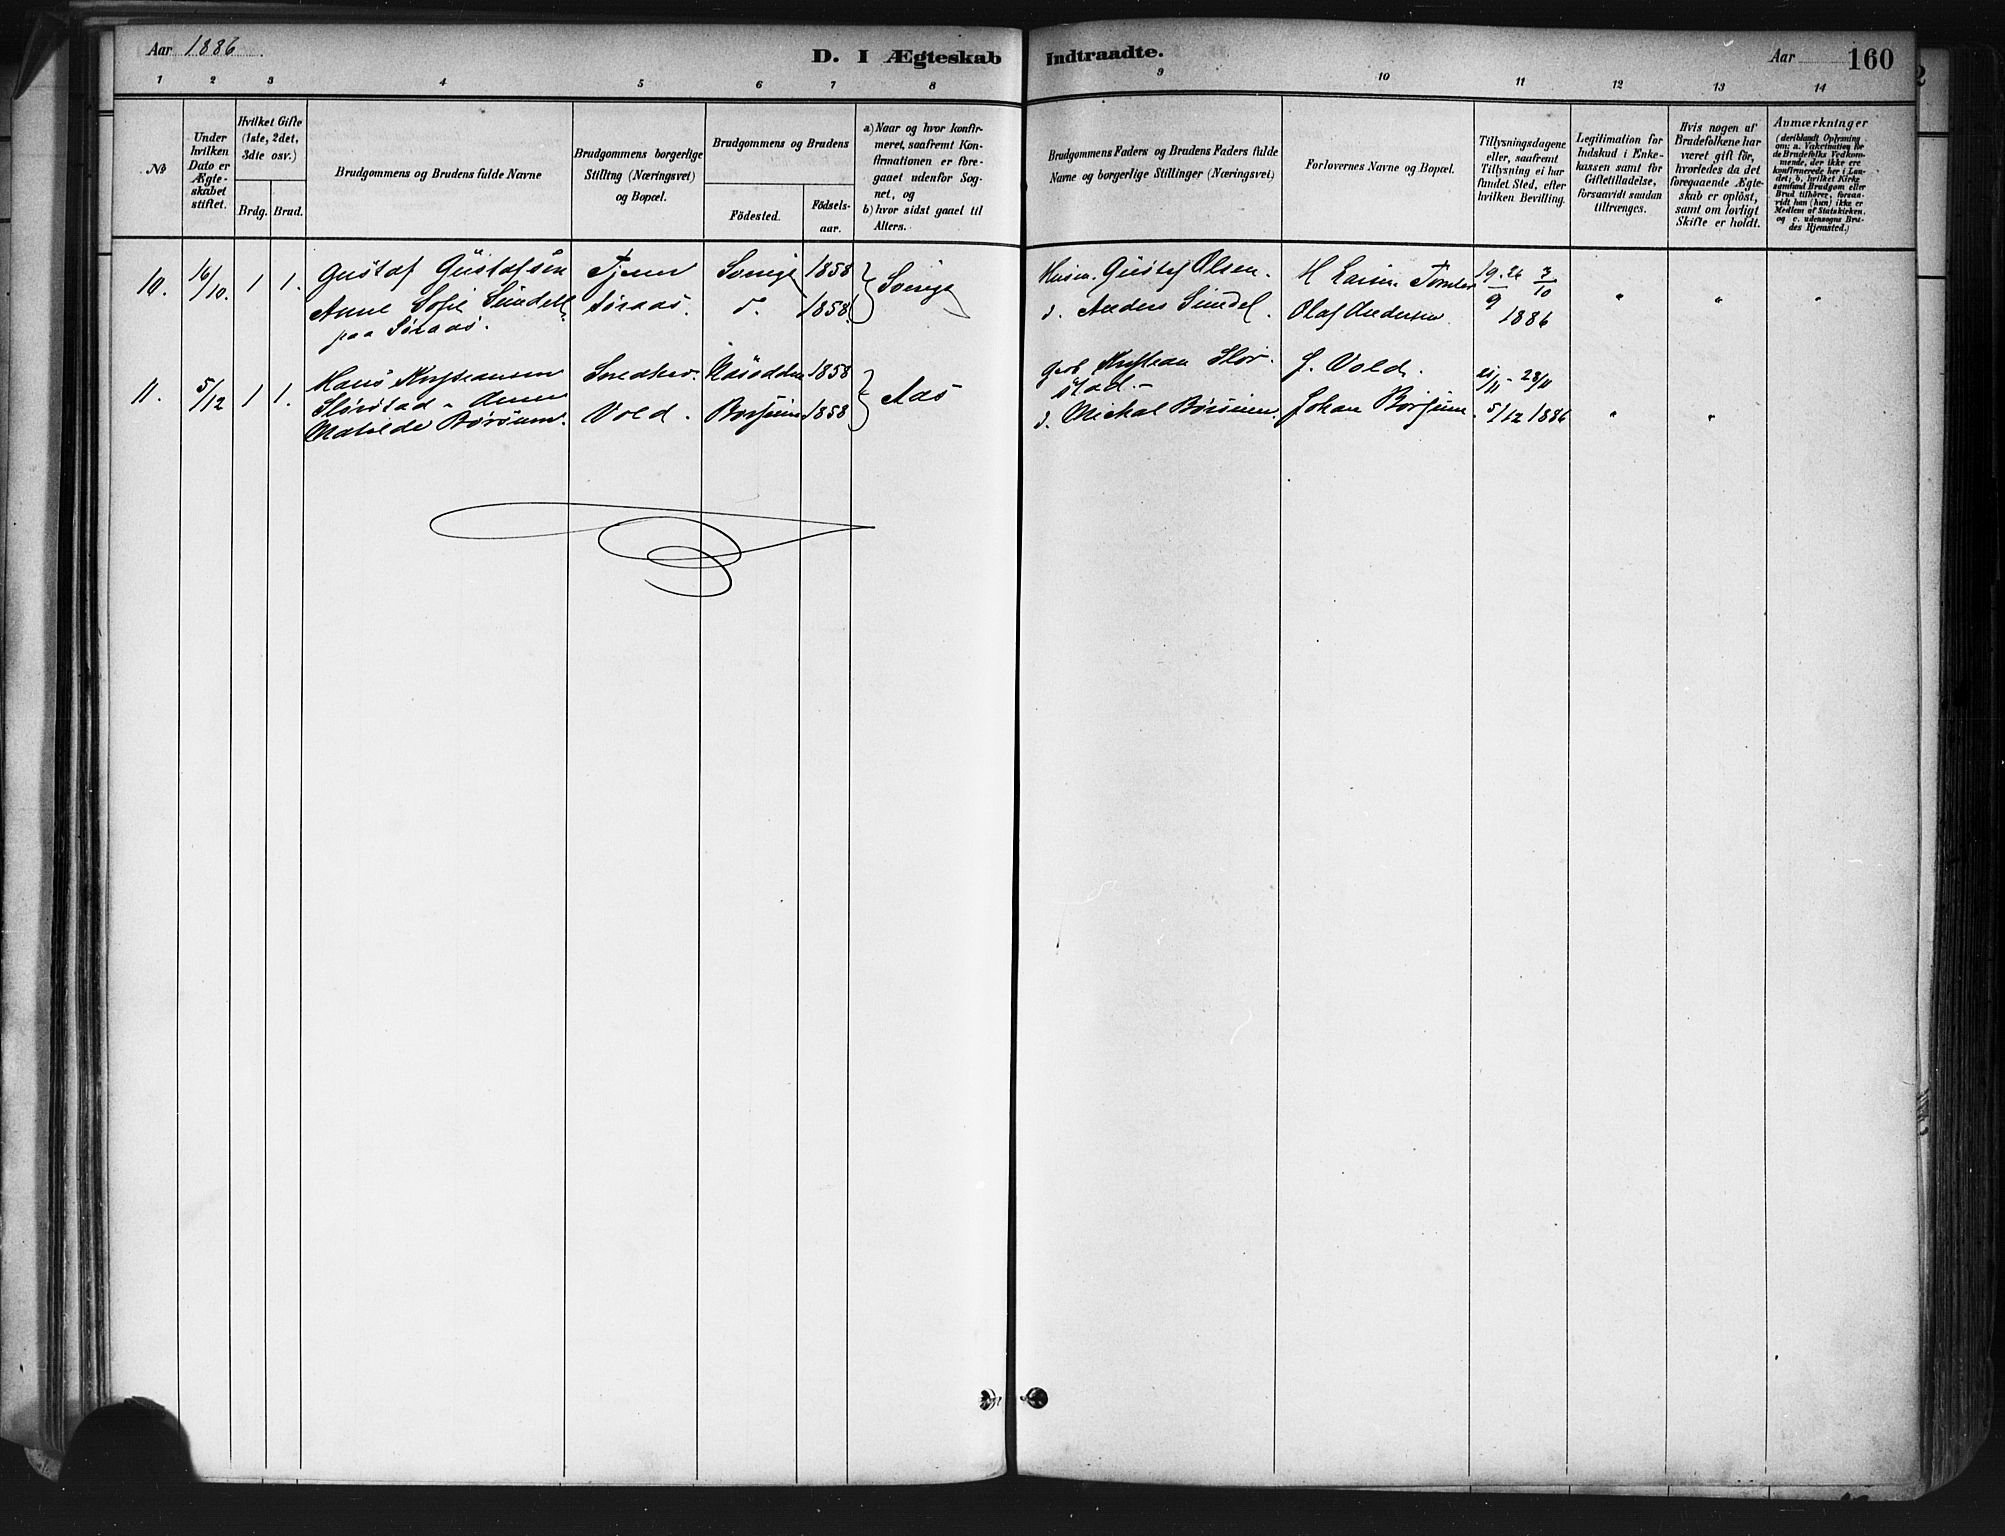 Aar 1886
D. I Ægteskab Indtraadte.
Aar 160
1 2 3 4 5 6 7 8 9 10 11 12 13 14
No
Under hvilken Dato er Ægteskabet stiftet.
Hvilket Gifte (1ste, 2det, 3die osv.)
Brdg. Brud.
Brudgommens og Brudens fulde Navne
Brudgommens borgerlige Stilling (Næringsvei) og Bopæl.
Brudgommens og Brudens
Födested.
Födselsaar.
a) Naar og hvor konfirmeret, saafremt Konfirmationen er foregaaet udenfor Sognet, og
b) hvor sidst gaaet til Alters.
Brudgommens Faders og Brudens Faders fulde Navne og borgerlige Stillinger (Næringsvei)
Forlovernes Navne og Bopæl.
Tillysningsdagene eller, saafremt Tillysning ei har fundet Sted, efter hvilken Bevilling.
Legitimation for Indskud i Enkekassen samt for Giftetilladelse, forsaavidt saadan tiltrænges.
Hvis nogen af Brudefolkene har været gift för, hvorledes da det foregaaende Ægteskab er oplöst, samt om lovligt Skifte er holdt.
Anmærkninger
(deriblandt Oplysning om: a. Vakcination for de Brudefolks Vedkommende, der ikke ere konfirmerede her i Landet; b. hvilket Kirkesamfund Brudgom eller Brud tilhörer, forsaavidt han (hun) ikke er Medlem af Statskirken, og c. udensogns Brudes Hjemsted.)
10. 16/10. 1 1. Gustaf Gustafsen Tjener Sverige 1858 } Sverige Husm. Gustaf Olsen. H Larsen Tomter 19. 26 3/10 " " "
Anne Sofie Sundell Søraas. d. 1858. d. Anders Sundel. Olaf Andersen 9 1886
paa Søraas.
11. 5/12 1 1. Hans Kristiansen Snedker. Næsodden 1858 } Aas Gdb. Kristian Stor- J. Vold. 21/11 - 28/11
Storstad - Anne Vold. Borsum 1858 stad. - Johan Borsum. 5/12 1886 " "
Matilde Børsum. d. Mickal Børsum.